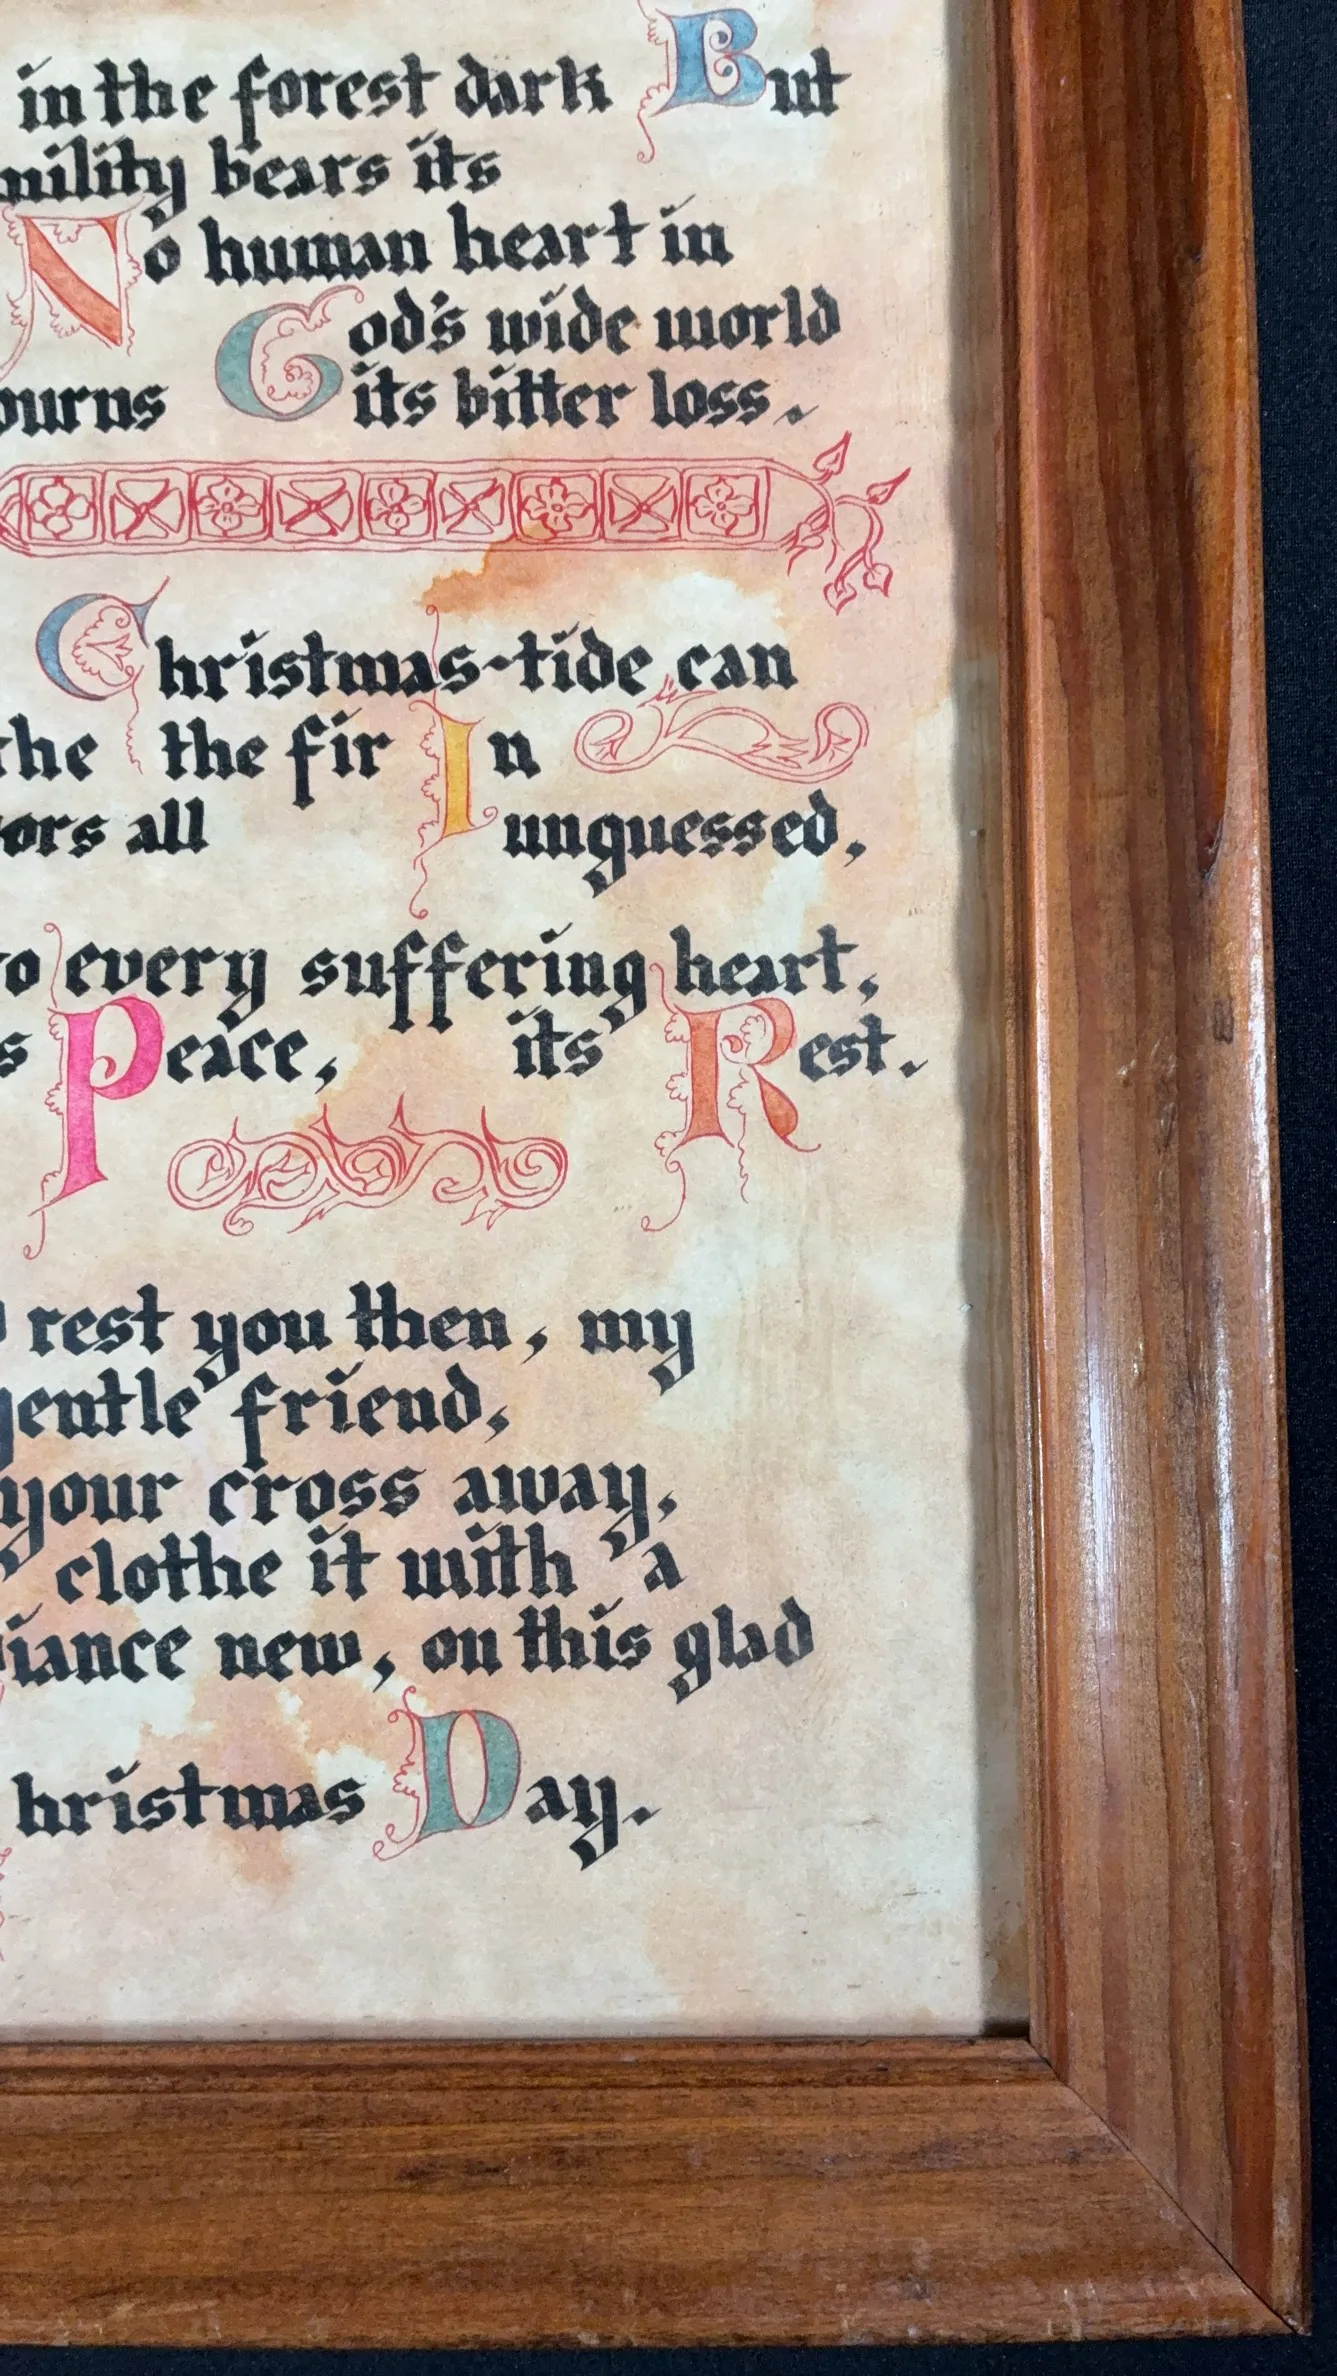 in the forest dark But
mility bears its
No human heart in
God's wide world
ourns its bitter loss.
Christmas-tide can
the the fir In
ors all unguessed,
to every suffering heart,
s Peace, its Rest.
rest you then, my
gentle friend,
your cross away,
clothe it with a
iance new, on this glad
hristmas Day.